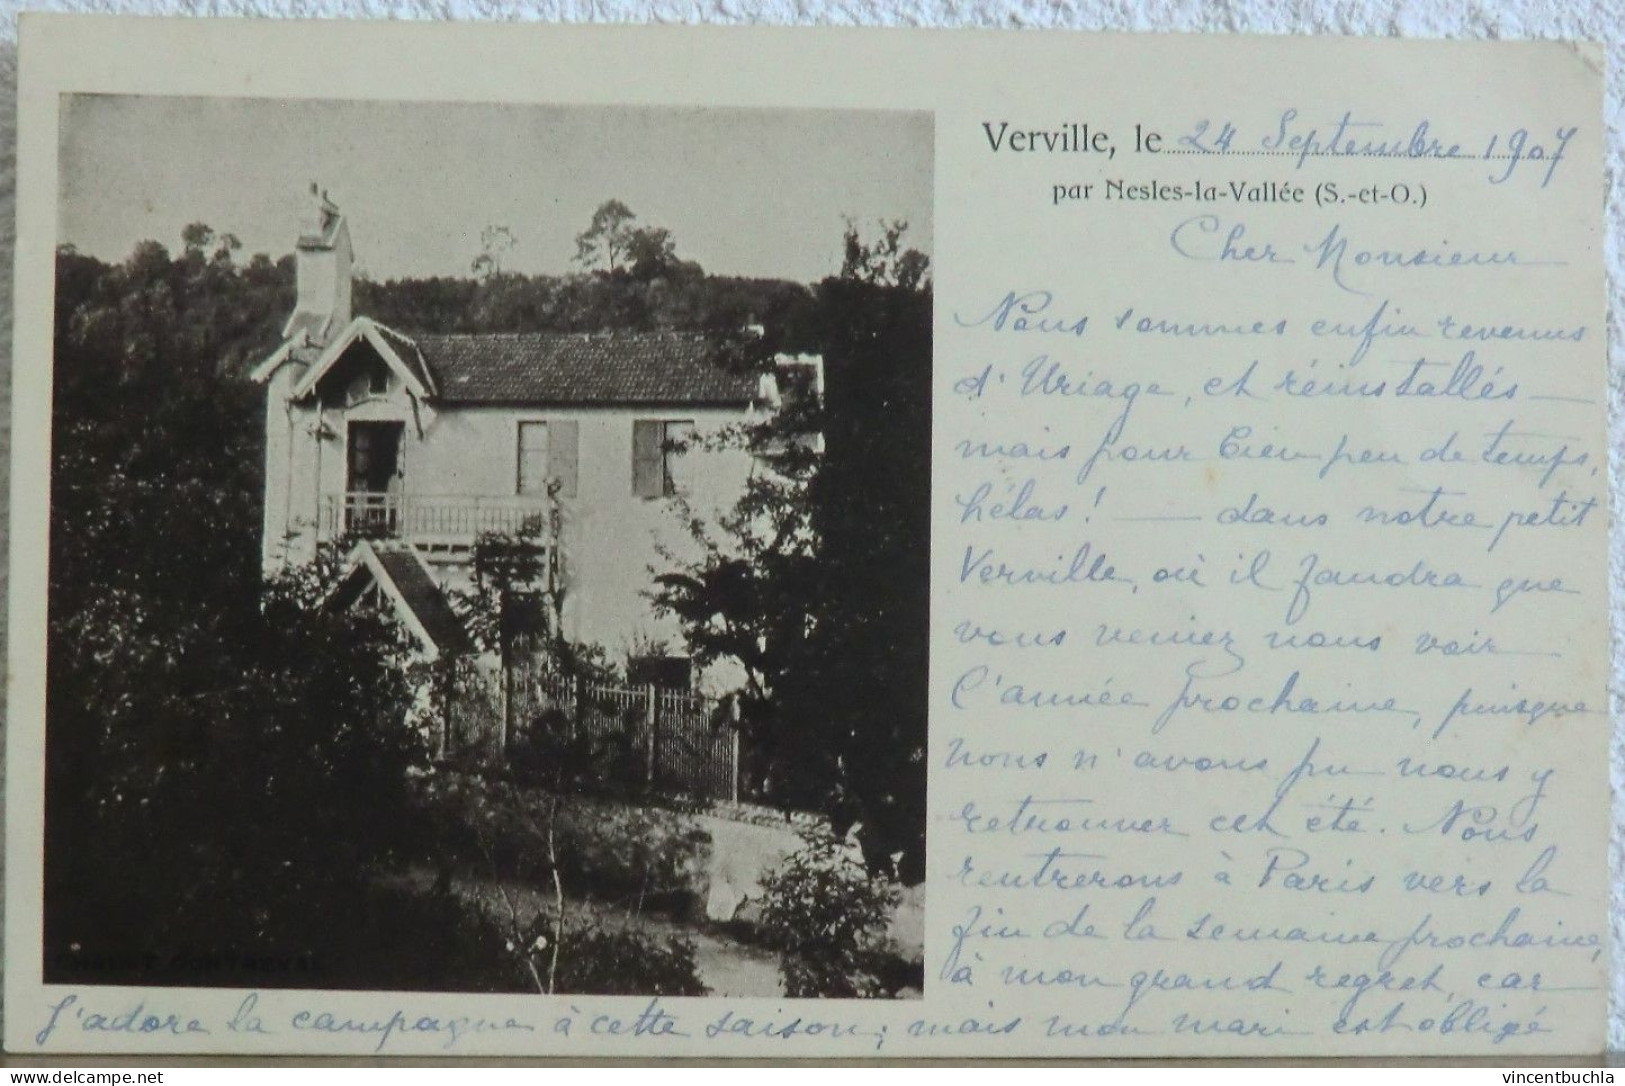 Verville, le 24 Septembre 1907
par Nesles-la-Vallée (S.-et-O.)
Cher Monsieur
Nous sommes enfin revenus
d'Uriage, et réinstallés —
mais pour bien peu de temps,
hélas! — dans notre petit
Verville, où il faudra que
vous veniez nous voir
l'année prochaine, puisque
nous n'avons pu nous y
retrouver cet été. Nous
rentrerons à Paris vers la
fin de la semaine prochaine,
à mon grand regret, car
j'adore la campagne à cette saison; mais mon mari est obligé
vincentbuchla